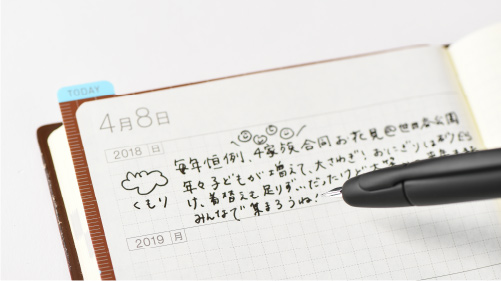 TODAY
4月8日
2018 日
毎年恒例、4家族合同お花見@世田谷公園
年々子どもが増えて、大さわぎ! おにぎりはあり
くもり
け、着替えも足りず…だったけど
みんなで集まろうね!
2019 月